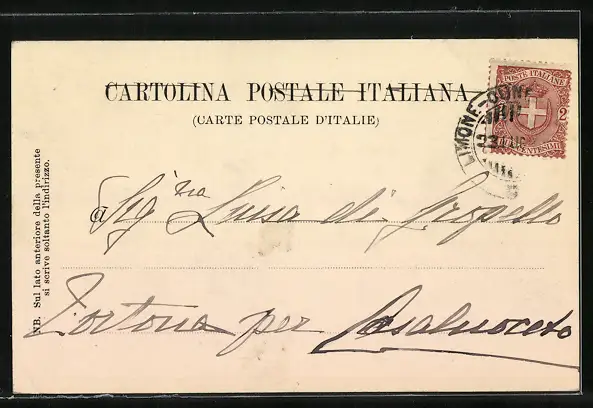 CARTOLINA POSTALE ITALIANA
(CARTE POSTALE D'ITALIE)
POSTE ITALIANE
2
CENTESIMI
LIMONE-
a Sig.ra Luisa di Gropello
Tortona per Casalnoceto
NB. Sul lato anteriore della presente
si scrive soltanto l'indirizzo.